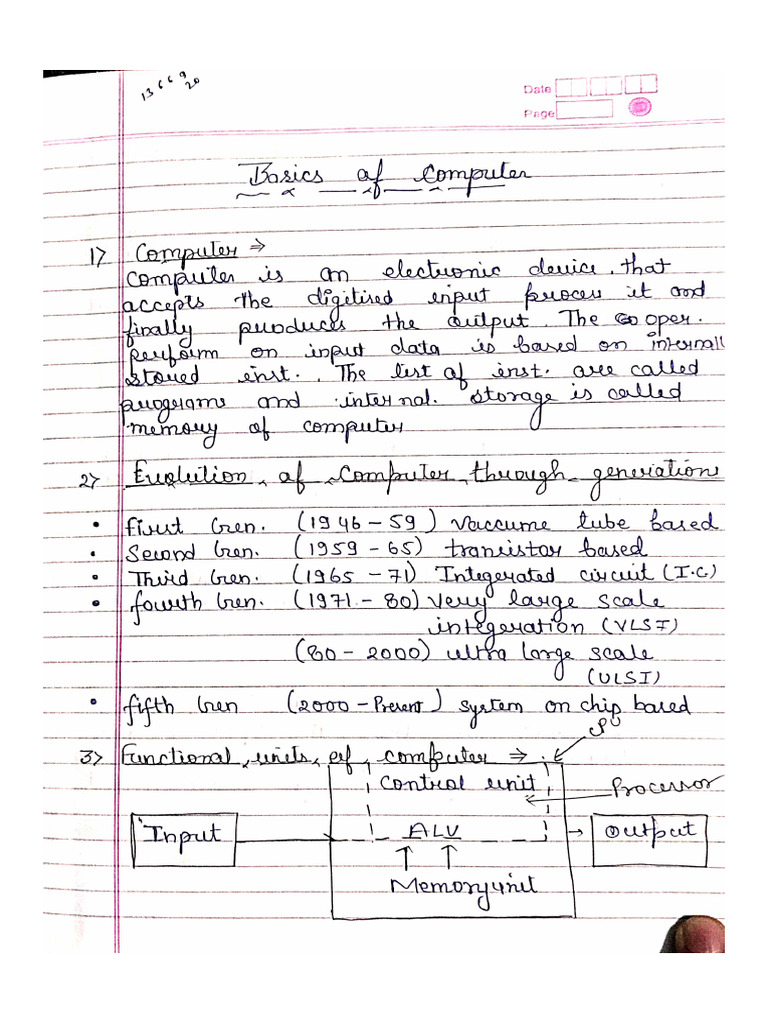 13669
20
Date
Page
Basics of Computer
1> Computer ⇒
Computer is an electronic device, that
accepts the digitised input proces it and
finally produces the output. The oper.
perform on input data is based on internall
stored inst.. The list of inst. are called
programs and internal. storage is called
memory of computer
2> Evolution of Computer through generations
• first Gen. (1946 - 59) Vaccume tube based
• Second Gen. (1959 - 65) transistor based
• Third Gen. (1965 - 71) Integerated circuit (I.C)
• fourth Gen. (1971 - 80) Very large scale
integeration (VLSI)
(80 - 2000) ultra large scale
(ULSI)
• fifth Gen (2000 - Present) system on chip based
3> Functional units of computer ⇒
Control unit
Processor
Input
ALU
Output
Memory unit